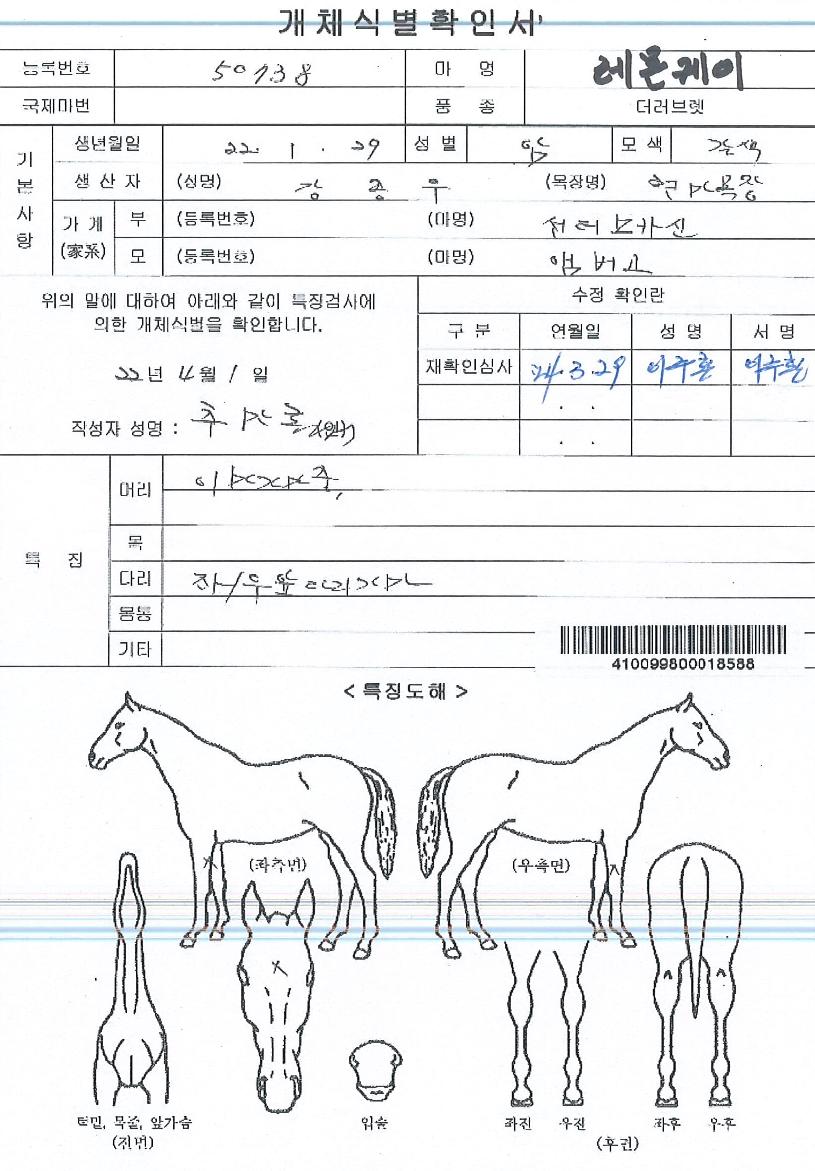 개체식별확인서
등록번호 50738 마 명 레몬케이
국제마번 품 종 더러브렛
기본사항
생년월일 22. 1. 29 성 별 암 모 색 갈색
생 산 자 (성명) 강 종 우 (목장명)
가 계 (家系)
부 (등록번호) (마명) 선더모카신
모 (등록번호) (마명)
위의 말에 대하여 아래와 같이 특징검사에
의한 개체식별을 확인합니다.
22년 4월 1 일
작성자 성명 :
수정 확인란
구 분 연월일 성 명 서 명
재확인심사 24.3.29 이주환 이주환
. .
. .
특 징
머리
목
다리
몸통
기타
410099800018588
< 특징도해 >
(좌측면) (우측면)
턱밑, 목줄, 앞가슴
(전면)
입술
좌전 우전 좌후 우후
(후면)